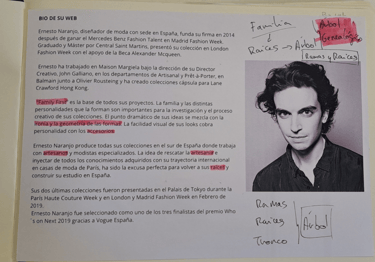 BIO DE SU WEB
Ernesto Naranjo, diseñador de moda con sede en España, funda su firma en 2014
después de ganar el Mercedes Benz Fashion Talent en Madrid Fashion Week.
Graduado y Máster por Central Saint Martins, presentó su colección en London
Fashion Week con el apoyo de la Beca Alexander Mcqueen.
Ernesto ha trabajado en Maison Margiela bajo la dirección de su Director
Creativo, John Galliano, en los departamentos de Artisanal y Prêt-à-Porter, en
Balmain junto a Olivier Rousteing y ha creado colecciones cápsula para Lane
Crawford Hong Kong.
"Family first" es la base de todos sus proyectos. La familia y las distintas
personalidades que la forman son importantes para la investigación y el proceso
creativo de sus colecciones. El punto dramático de sus ideas se mezcla con la
y la geometría de las formas. La facilidad visual de sus looks cobra
personalidad con los accesorios
Ernesto Naranjo produce todas sus colecciones en el sur de España donde trabaja
con artesanos y modistas especializados. La idea de rescatar la artesanía e
inyectar de todos los conocimientos adquiridos con su trayectoria internacional
en casas de moda en París, ha sido la excusa perfecta para volver a sus raíces y
construir su estudio en España.
Sus dos últimas colecciones fueron presentadas en el Palais de Tokyo durante la
París Haute Couture Week y en London y Madrid Fashion Week en Febrero de
2019.
Ernesto Naranjo fue seleccionado como uno de los tres finalistas del premio Who
's on Next 2019 gracias a Vogue España.
Familia
Raíces → Árbol
Árbol
Ramas y Raíces
Ramas
Raíces
Tronco
Árbol